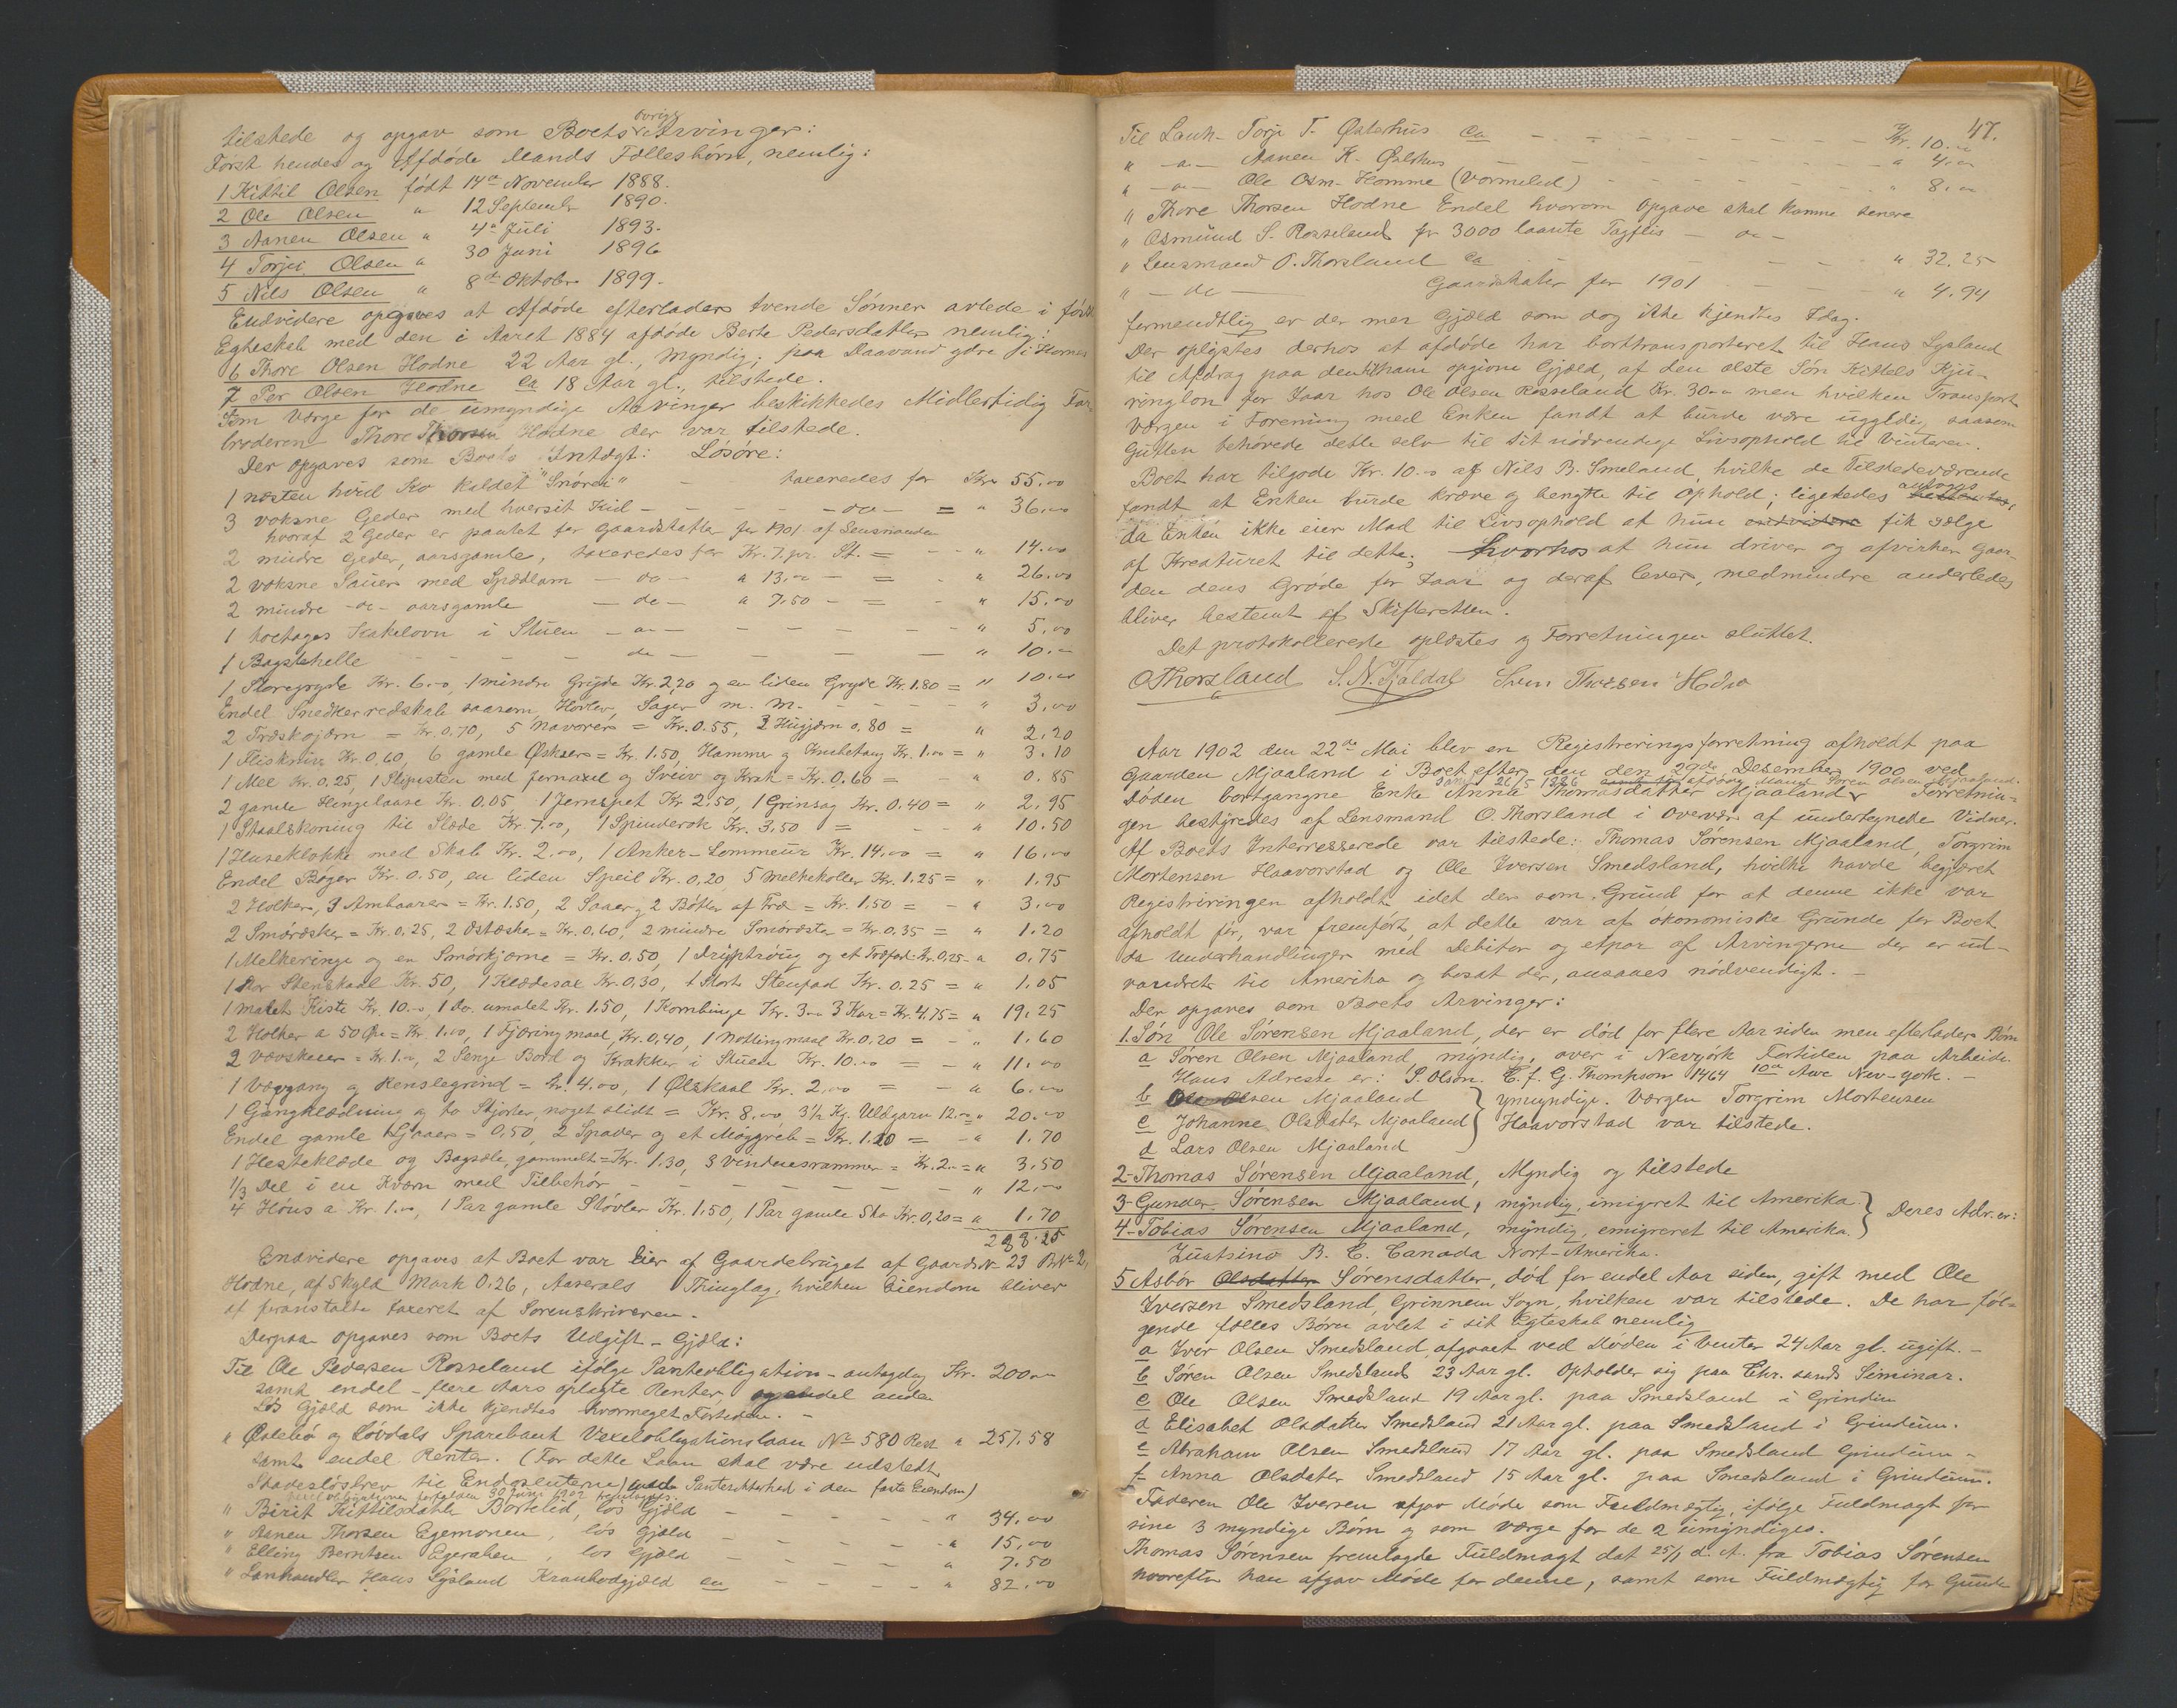 tilstede og opgav som Boets øvrige Arvinger:
Først hendes og Afdøde Mands Fællesbørn, nemlig:
1 Kittil Olsen født 14de November 1888.
2 Ole Olsen " 12 September 1890.
3 Aanen Olsen " 4de Juli 1893.
4 Torjus Olsen " 30 Juni 1896
5 Nils Olsen " 8de Oktober 1899.
Endvidere opgaves at Afdøde efterlader tvende Sønner avlede i første
Egteskab med den i Aaret 1884 afdøde Berte Pedersdatter nemlig:
6 Thore Olsen Hodne 22 Aar gl., Myndig, paa Daavand ydre
7 Per Olsen Hodne ca 18 Aar gl., tilstede.
Som Værge for de umyndige Arvinger beskikkedes Midlertidig Far-
broderen Thore Thorsen Hodne der var tilstede.
Der opgaves som Boets Indtægt: Løsøre:
1 næsten hvid Ko kaldet "Snøroi" - taxeredes for Kr. 55.00
3 voksne Geder med hversit Kid - - - - do - = " 36.00
hvoraf 2 Geder er pantet for Gaardskatter for 1901 af Lensmanden
2 mindre Geder, aarsgamle, taxeredes for Kr. 7. pr St. = - - " 14.00
2 voksne Sauer med Spædlam - do - a 13.00 - = - " 26.00
2 mindre - do - aarsgamle - do - a 7.50 - = - " 15.00
1 toetages Kakelovn i Stuen - do - - - - - " 5.00
1 Bagstehelle - - - - do - - - - " 10.00
1 Storegryde Kr. 6.00, 1 mindre Gryde Kr. 2,20 og en liden Gryde Kr. 1.80 = " 10.00
Endel Snedkerredskab saasom Høvler, Sager m. m. - - - - " 3.00
2 Træskojærn = Kr. 0,70, 5 Navarer = Kr. 0.55, 3 Hugjærn 0,80 = " 2.20
1 Fliskniv Kr. 0.60, 6 gamle Økser = Kr. 1.50, Hammer og Knibetang Kr. 1.00 = " 3.10
1 Mel Kr. 0.25, 1 Slipesten med jernaxel og Sveiv og Krak = Kr. 0.60 = - " 0.85
2 gamle Hengelaase Kr. 0.05, 1 Jernspet Kr 2.50, 1 Grinsag Kr. 0.40 = " 2.95
1 Staalskoning til Slæde Kr. 7.00, 1 Spinderok Kr. 3.50 = - - " 10.50
1 Huseklokke med Skab Kr. 2.00, 1 Anker-Lommeur Kr. 14.00 = " 16.00
Endel Bøger Kr. 0.50, en liden Speil Kr. 0,20 5 Melkekoller Kr. 1.25 = " 1.95
2 Holker, 3 Ambaarer = Kr. 1.50, 2 Saaer, 2 Bøtter af Træ = Kr. 1.50 = - " 3.00
2 Smørøsker = Kr. 0,25, 2 Ostøsker = Kr. 0.60, 2 mindre Smørøsker = Kr. 0.35 = " 1.20
1 Melkeringe og en Smørkjerne = Kr. 0.50, 1 Driptroug og et Træfad = Kr. 0,25 - " 0.75
1 Stor Stenskaal Kr. 50, 1 Klædesæl Kr. 0,30, 1 Stort Stenfad Kr. 0.25 = " 1.05
1 malet Kiste Kr. 10.00, 1 do. umalet Kr. 1.50, 1 Kornbinge Kr. 3.00 3 Kar = Kr. 4.75 = " 19.25
2 Holker a 50 Øre = Kr. 1.00, 1 Fjæring maal, Kr. 0,40, 1 Notting maal Kr. 0.20 = - " 1.60
2 Vævskeer = Kr. 1.00, 2 Senge Bord og Krakker i Stuen Kr. 10.00 = - " 11.00
1 Vævgang og Renslegrind = Kr. 4.00, 1 Ølskaal Kr. 2.00 = - " 6.00
1 Gangklædning og to Skjorter noget slidt = Kr. 8.00, 3½ Kg. Uldgarn 12.00 = " 20.00
Endel gamle Ljaaer = 0,50, 2 Spader og et Møggreb = Kr. 1.20 = - " 1.70
1 Hesteklæde og Bagsæle, gammelt = Kr. 1.30, 3 Vinduesrammer = Kr. 2.- = " 3.50
1/3 Del i en Kværn med Tilbehør - - - - - - - " 12.00
4 Høns a Kr. 1.00, 1 Par gamle Støvler Kr. 1.50, 1 Par gamle Sko Kr. 0,20 = " 1.70
Endvidere opgaves at Boet var Eier af Gaardebruget af Gaards No 23 B.No 2,
Hodne, af Skyld Mark 0.26, Aaserals Thinglag, hvilken Eiendom bliver
at foranstalte taxeret af Sorenskriveren.
Derpaa opgaves som Boets Udgift - Gjæld:
Til Ole Pedersen Rosseland ifølge Panteobligation - antagelig Kr. 200.00
samt endel - flere Aars opligte Renter og endel anden
Løs Gjæld som ikke kjendtes hvormeget Fortiden. -
" Østebø og Løvdals Sparebank Vexelobligationslaan No 580 Rest " 257.58
samt endel Renter. (For dette Laan skal være udstedt
Skadesløsbrev til Endosenterne) med Panteretterhed i den faste Eiendom)
" Birit Kittilsdatter Bortelid, løs Gjæld - - - - - " 34.00
" Aanen Thorsen Egemonen, løs Gjæld - - - - " 15.00
" Elling Berntsen Egerahen, løs Gjæld - - - - " 7.50
" Lanhandler Hans Lysland Krambodgjæld ca - - - - " 82.00
47.
Til Lanh- Torje T. Østerhus ca - - - - - - Kr. 10.00
" - do - Aanen K. Østerhus - - - - - - " 4.00
" - do - Ole Osm- Homme (Vormelid) - - - - - " 8.00
" Thore Thorsen Hodne Endel hvorom Opgave skal komme senere
" Osmund S. Rosseland for 3000 laante Tagflis - do -
" Lensmand O. Thorsland ca - - - - " 32.25
" - do - Gaardskatter for 1901 - - - " 4.94
formendtlig er der mer Gjæld som dog ikke kjendtes Idag.
Der oplystes derhos at afdøde har borttransporteret til Hans Lysland
til Afdrag paa den til ham opgivne Gjæld, af den ælste Søn Kittels Hju-
ringløn for Iaar hos Ole Olsen Rosseland Kr. 30.00 men hvilken Transport
Værgen i Forening med Enken fandt at burde være ugyldig, saasom
Gutten behøvede dette selv til sit nødvendige Livsophold til Vinteren.
Boet har tilgode Kr. 10.00 af Nils B. Smeland, hvilke de Tilstedeværende
fandt at Enken burde kræve og benytte til Ophold; ligeledes antoges
da Enken ikke eier Mad til Livsophold at hun endvidere fik sælge
af Kreaturet til dette; hvorhos at hun driver og afvirker Gaar-
den dens Grøde for Iaar og deraf lever, medmindre anderledes
bliver bestemt af Skifteretten.
Det protokollerede oplæstes og Forretningen sluttet.
OThorsland S. N. Fjaldal Sven Thorsen Hodne
Aar 1902 den 22de Mai blev en Registreringsforretning afholdt paa
Gaarden Mjaaland i Boet efter den den 29de Desember 1900 ved
samt 26/5 1886 afdøde Mand Søren Olsen Mjaaland.
Døden bortgangne Enke Anna Thomasdatter Mjaaland Forretnin-
gen bestyredes af Lensmand O. Thorsland i Overvær af undertegnede Vidner.
Af Boets Interresserede var tilstede: Thomas Sørensen Mjaaland, Torgrim
Mortensen Haavorstad og Ole Iversen Smedsland, hvilke havde begjæret
Registreringen afholdt idet der som Grund for at denne ikke var
afholdt før, var fremført, at dette var af økonomiske Grunde for Boet
da Underhandlinger med Debitor og etpar af Arvingerne der er ud-
vandret til Amerika og bosat der, ansaaes nødvendigt. -
Der opgaves som Boets Arvinger:
1. Søn Ole Sørensen Mjaaland, der er død for flere Aar siden men efterlader Børn
a Søren Olsen Mjaaland, myndig, over i Nevyork Fortiden paa Arbeide.
Hans Adresse er: S. Olson. C. f. G. Thompson 1464 10de Ave New-york. -
b Olsen Mjaaland
c Johanne Olsdatter Mjaaland } ynmyndige. Værgen Torgrim Mortensen Haavorstad var tilstede.
d Lars Olsen Mjaaland
2- Thomas Sørensen Mjaaland, Myndig og tilstede
3- Gunder Sørensen Mjaaland, myndig, imigreret til Amerika
4- Tobias Sørensen Mjaaland, myndig, emigreret til Amerika. } Deres Adr. er:
Quatsino B. C. Canada Nort-Amerika.
5 Asbør Olsdatter Sørensdatter, død for endel Aar siden, gift med Ole
Iversen Smedsland, Grinnem Sogn, hvilken var tilstede. De har føl-
gende fælles Børn avlet i sit Egteskab nemlig
a Iver Olsen Smedsland, afgaaet ved Døden i Vinter 24 Aar gl. ugift. -
b Søren Olsen Smedsland 23 Aar gl. Opholder sig paa Chr. sands Seminar.
c Ole Olsen Smedsland 19 Aar gl. paa Smedsland i Grindum
d Elisabet Olsdatter Smedsland 21 Aar gl. paa Smedsland i Grindum.
e Abraham Olsen Smedsland 17 Aar gl. paa Smedsland Grindum -
f Anna Olsdatter Smedsland 15 Aar gl. paa Smedsland i Grindum.
Faderen Ole Iversen afgav Møde som Fuldmægtig, ifølge Fuldmagt for
sine 3 myndige Børn og som Værge for de 2 umyndiges.
Thomas Sørensen fremlagde Fuldmagt dat 25/1 d. A. fra Tobias Sørensen
hvorefter han afgav Møde for denne, samt som Fuldmægtig for Gunde